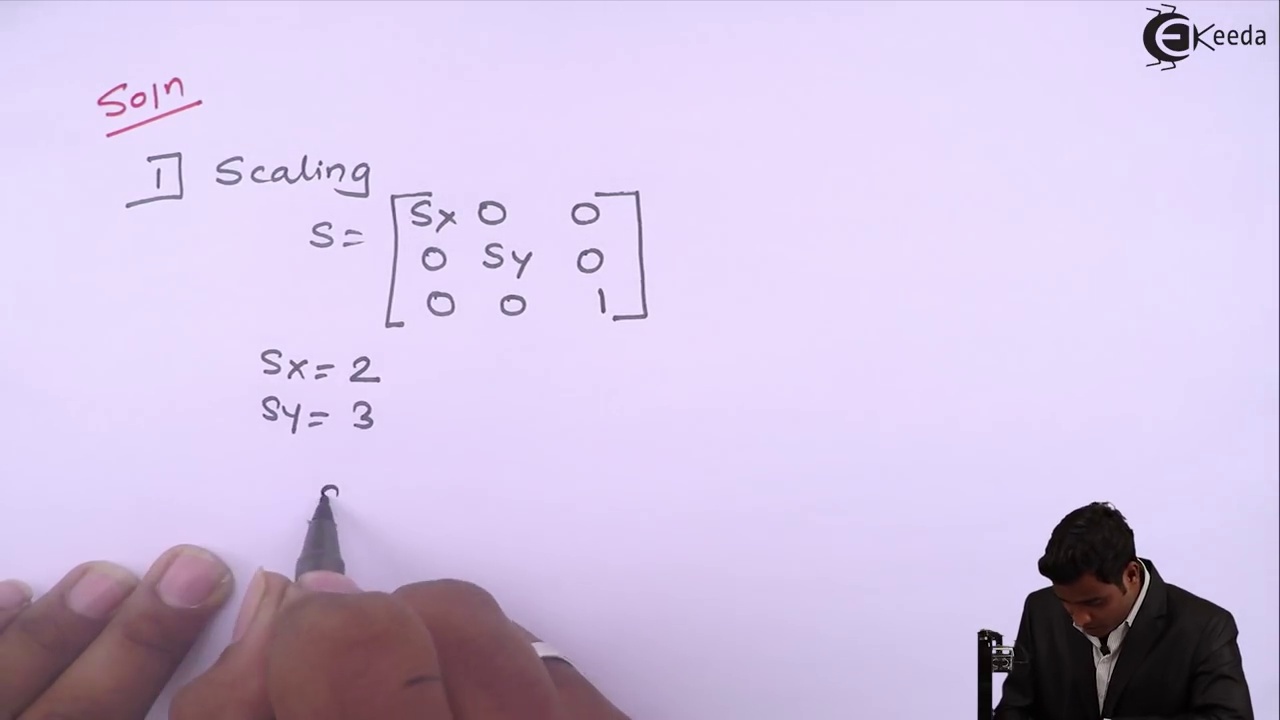 Keeda
Soln
1] Scaling
S = [Sx 0 0
0 Sy 0
0 0 1]
Sx = 2
Sy = 3